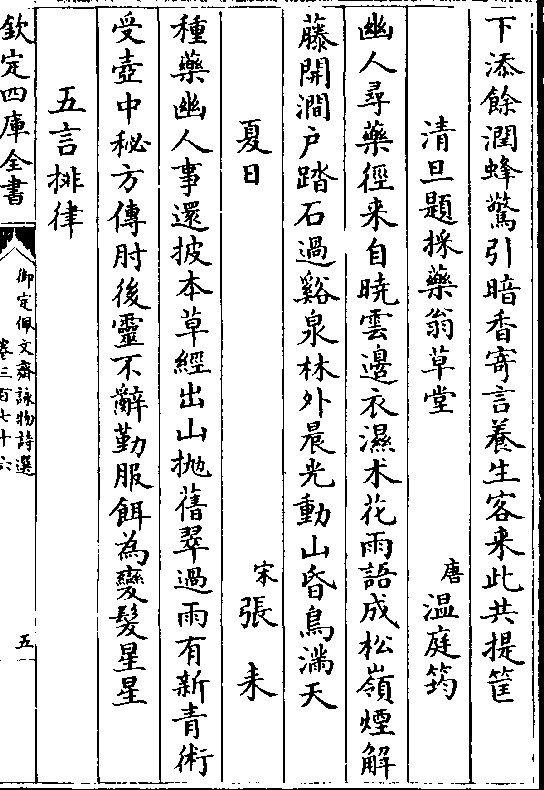 下添餘潤蜂驚引暗香寄言養生客来此共提筐
清旦題採藥翁草堂　唐温庭筠
幽人尋藥徑来自曉雲邊衣濕术花雨語成松嶺煙解
藤開澗户踏石過谿泉林外晨光動山昏鳥滿天
夏日　宋張耒
種藥幽人事還披本草經出山抛舊翠過雨有新青術
受壺中秘方傳肘後靈不辭勤服餌為變髮星星
五言排律
欽定四庫全書
御定佩文齋詠物詩選
卷三百七十六
五